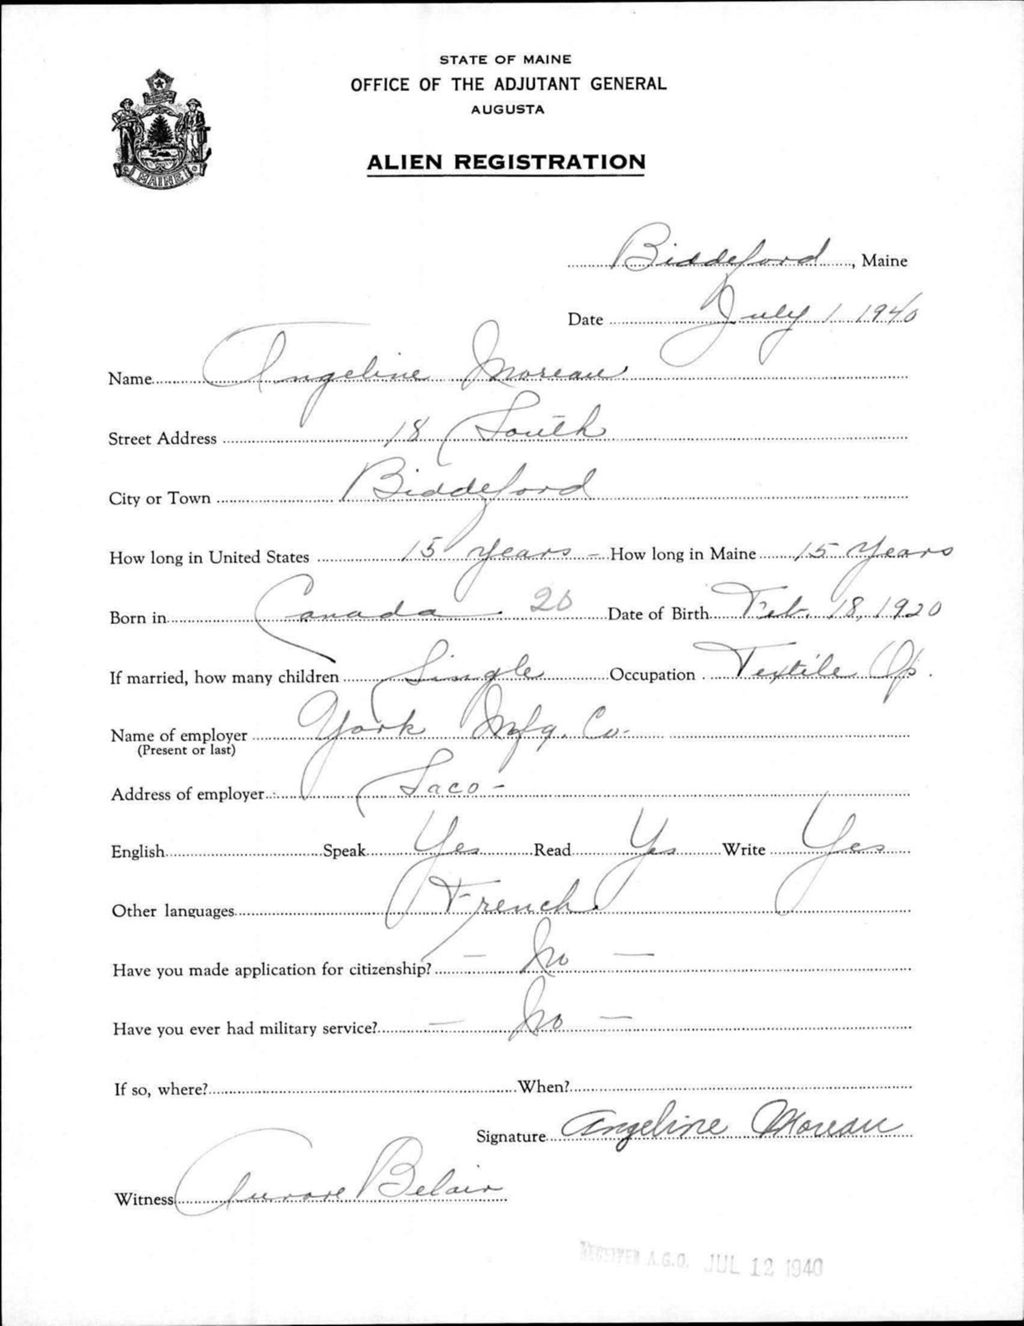 STATE OF MAINE
OFFICE OF THE ADJUTANT GENERAL
AUGUSTA
MAINE
ALIEN REGISTRATION
Biddeford, Maine
Date July 1 1940
Name Angeline Moreau
Street Address 18 South
City or Town Biddeford
How long in United States 15 years - How long in Maine 15 Years
Born in Canada 20 Date of Birth Feb. 18, 1920
If married, how many children Single Occupation Textile Op.
Name of employer York Mfg. Co.
(Present or last)
Address of employer Saco -
English Speak Yes Read Yes Write Yes
Other languages French.
Have you made application for citizenship? - No -
Have you ever had military service? - No -
If so, where? When?
Signature Angeline Moreau
Witness Aurore Belair
RECEIVED A.G.O. JUL 12 1940